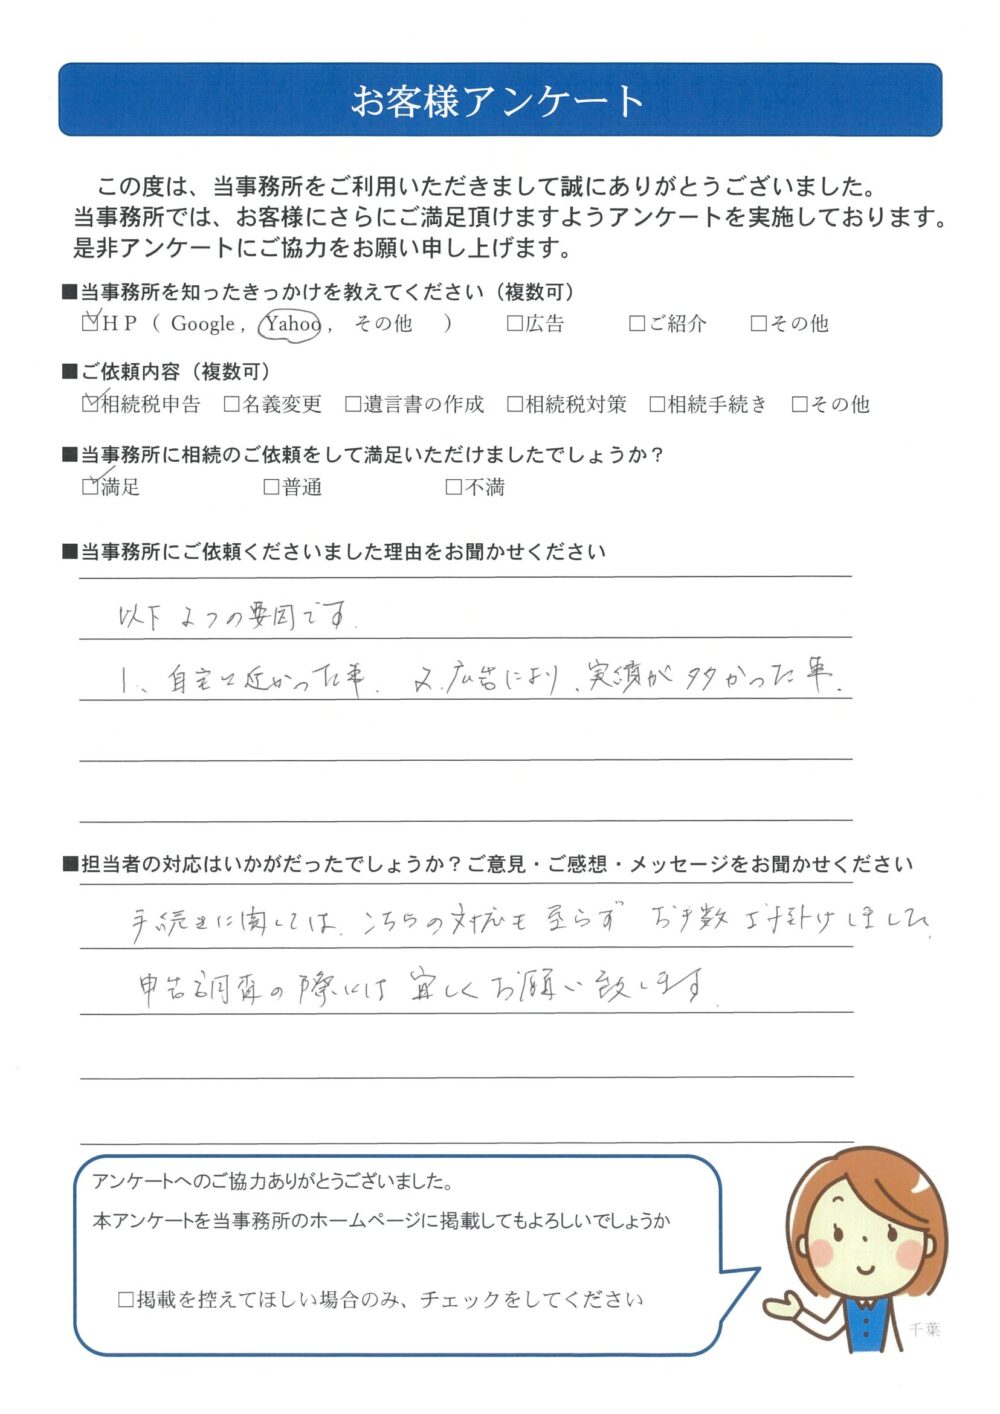 お客様アンケート
この度は、当事務所をご利用いただきまして誠にありがとうございました。
当事務所では、お客様にさらにご満足頂けますようアンケートを実施しております。
是非アンケートにご協力をお願い申し上げます。
■当事務所を知ったきっかけを教えてください（複数可）
☑ＨＰ（ Google , Yahoo , その他 ） □広告 □ご紹介 □その他
■ご依頼内容（複数可）
☑相続税申告 □名義変更 □遺言書の作成 □相続税対策 □相続手続き □その他
■当事務所に相続のご依頼をして満足いただけましたでしょうか？
☑満足 □普通 □不満
■当事務所にご依頼くださいました理由をお聞かせください
以下2つの要因です.
1、自宅に近かった事. 2.広告により、実績が多かった事.
■担当者の対応はいかがだったでしょうか？ご意見・ご感想・メッセージをお聞かせください
手続きに関しては、こちらの対応も至らず お手数お掛けしました.
申告調査の際には宜しくお願い致します.
アンケートへのご協力ありがとうございました。
本アンケートを当事務所のホームページに掲載してもよろしいでしょうか
□掲載を控えてほしい場合のみ、チェックをしてください
千葉